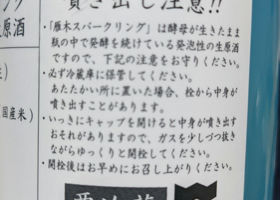 噴き出し注意!!
・「雁木スパークリング」は酵母が生きたまま
瓶の中で発酵を続けている発泡性の生原酒
ですので、下記の注意をお守りください。
・必ず冷蔵庫に保管してください。
あたたかい所に置いた場合、栓から中身が
噴き出すことがあります。
・いっきにキャップを開けると中身が噴き出す
おそれがありますので、ガスを少しづつ抜き
ながらゆっくりと開栓してください。
・開栓後はお早めにお召し上がりください。
原酒
国産米)